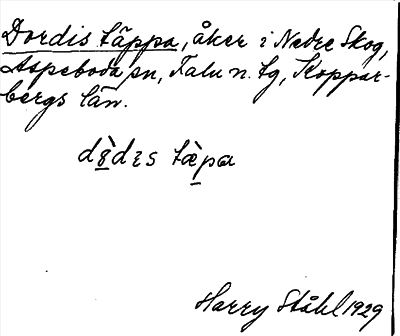 Dordis täppa, åker i Nedre Skog,
Aspeboda sn, Falu n. tg, Koppar-
bergs län.
Harry Ståhl 1929